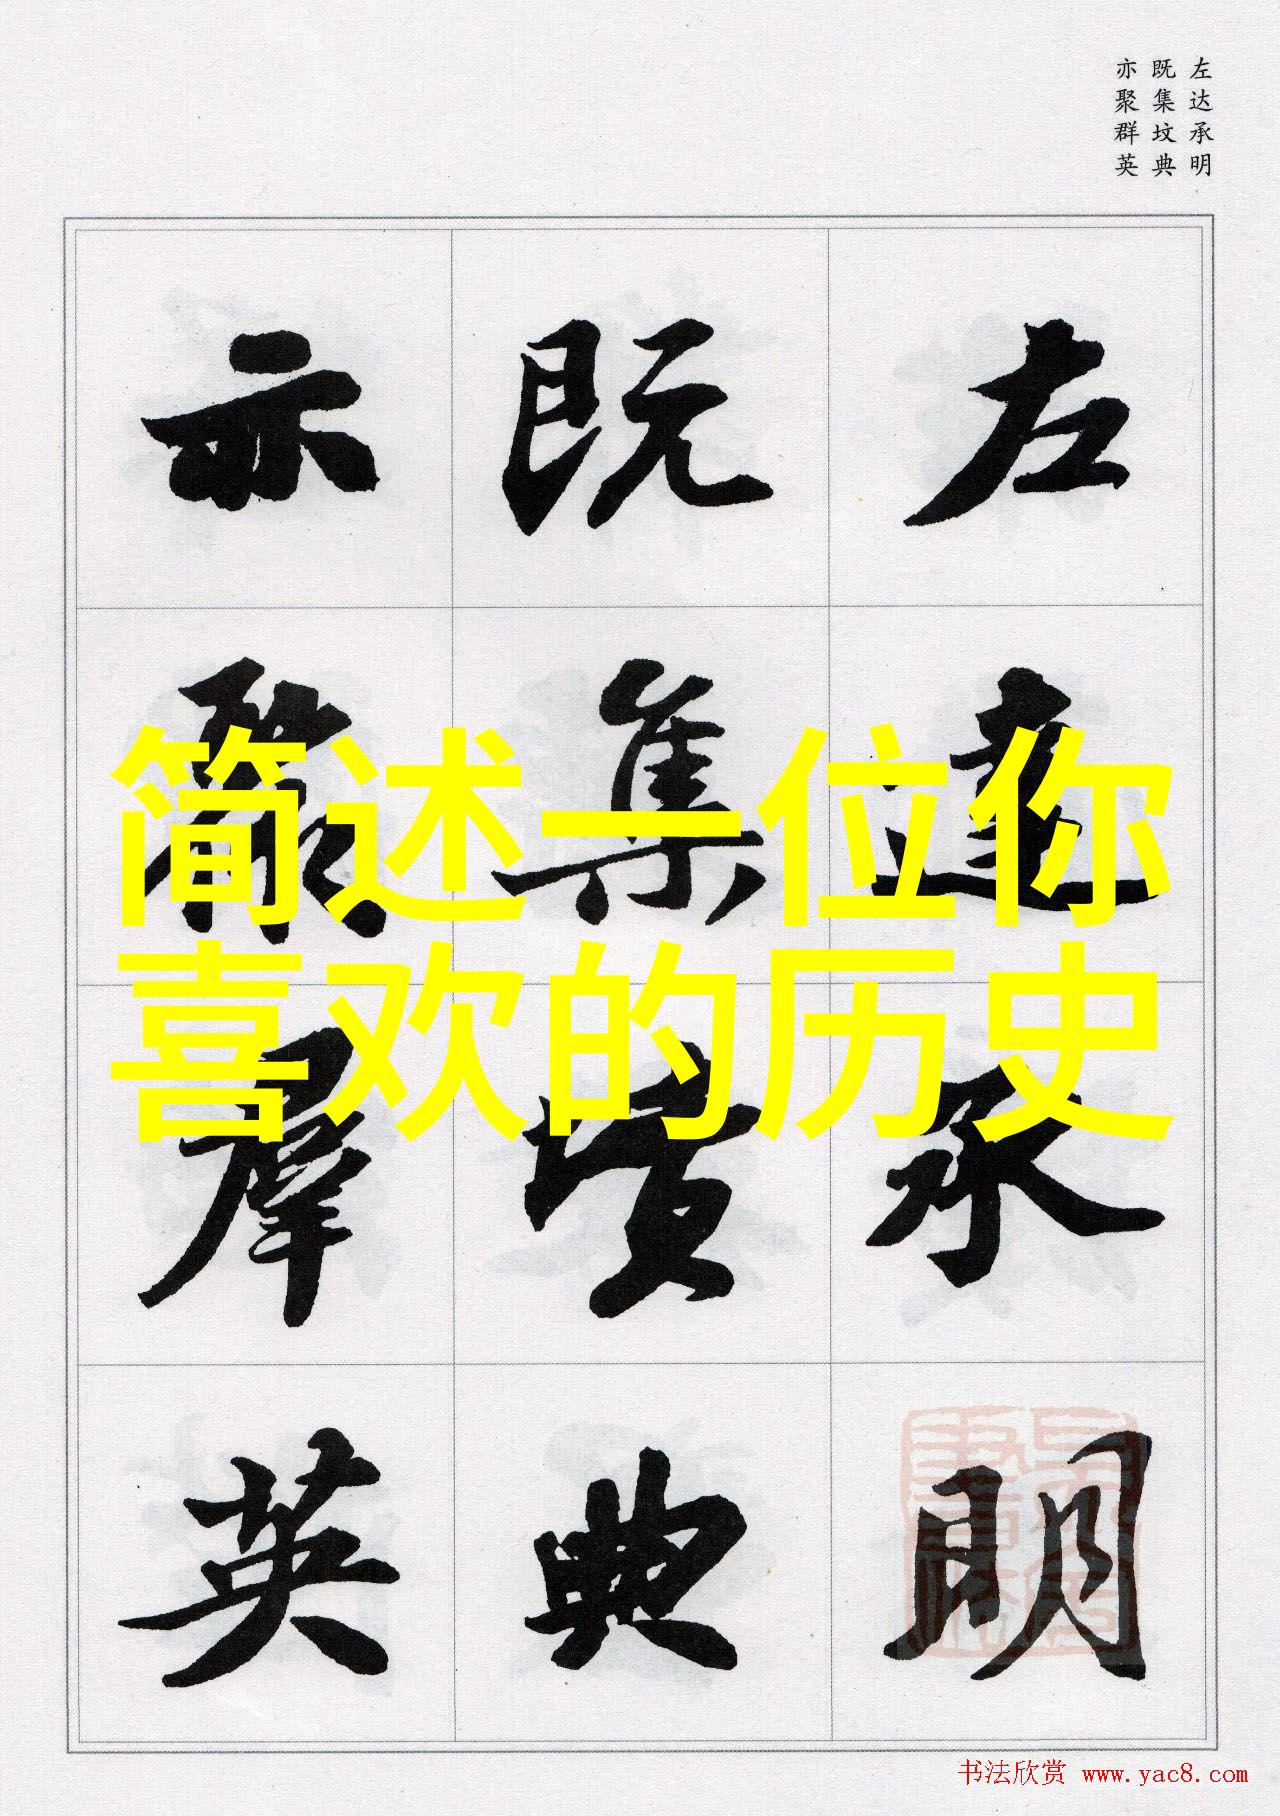 左达承明
既集坟典
亦聚群英
左達承明
既集墳典
亦聚群英
简述一位你
喜欢的历史
书法欣赏 www.yac8.com